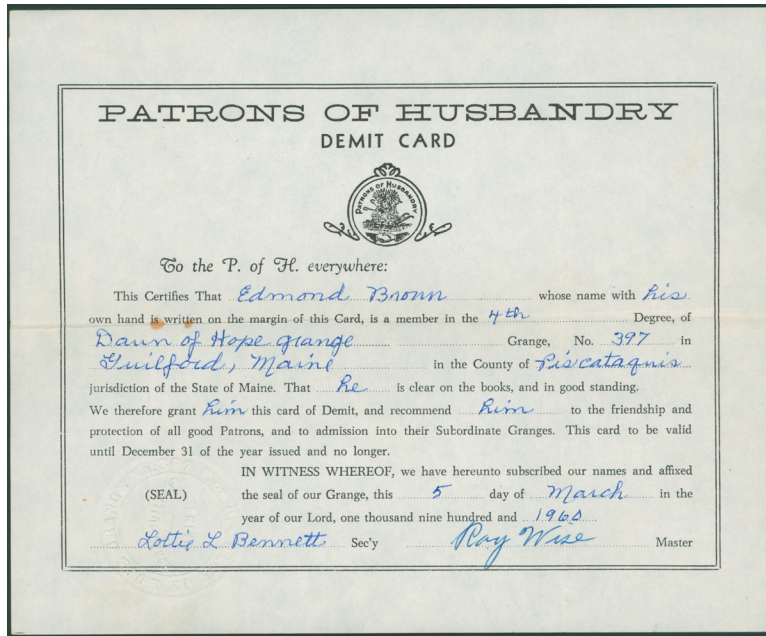 PATRONS OF HUSBANDRY
DEMIT CARD
PATRONS OF HUSBANDRY
To the P. of H. everywhere:
This Certifies That Edmond Brown whose name with his
own hand is written on the margin of this Card, is a member in the 4th Degree, of
Dawn of Hope grange Grange, No. 397 in
Guilford, Maine in the County of Piscataquis
jurisdiction of the State of Maine. That he is clear on the books, and in good standing.
We therefore grant him this card of Demit, and recommend him to the friendship and
protection of all good Patrons, and to admission into their Subordinate Granges. This card to be valid
until December 31 of the year issued and no longer.
IN WITNESS WHEREOF, we have hereunto subscribed our names and affixed
(SEAL) the seal of our Grange, this 5 day of March in the
year of our Lord, one thousand nine hundred and 1960
Lottie L Bennett Sec'y Roy Wise Master